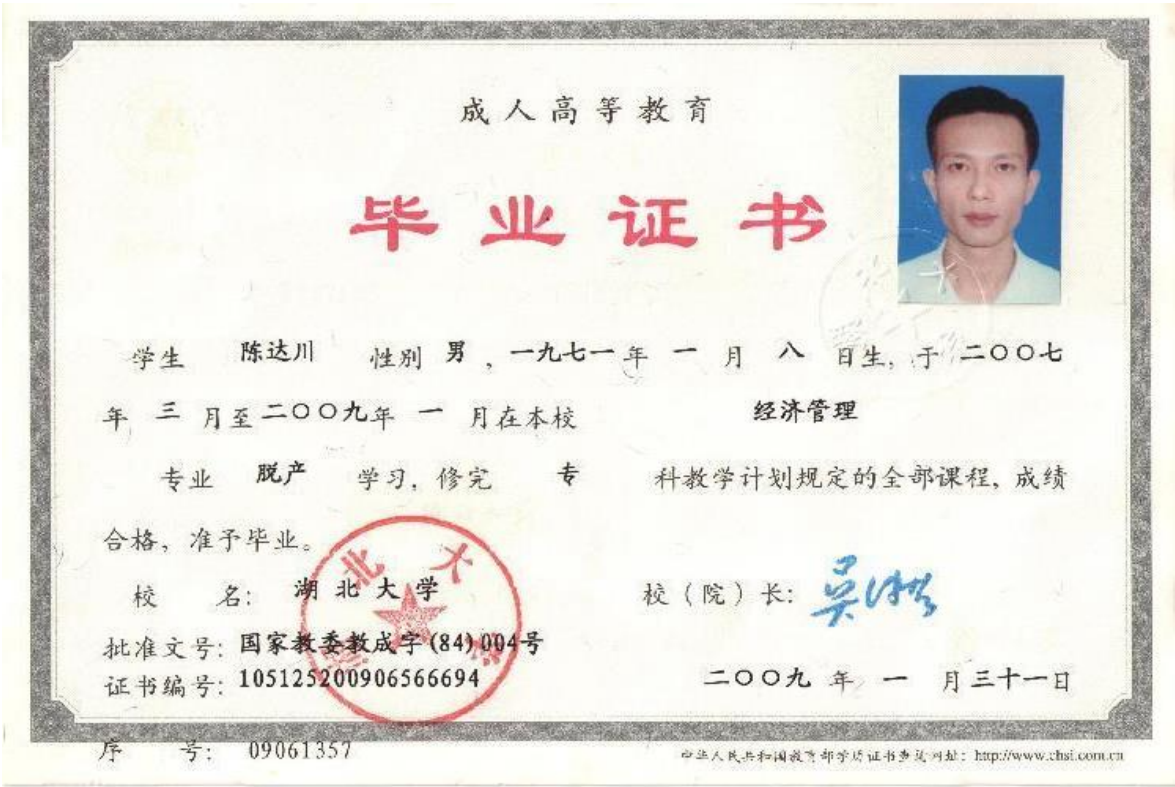 成人高等教育
毕业证书
学生 陈达川 性别 男 ，一九七一 年 一 月 八 日生，于 二〇〇七
年 三 月至 二〇〇九 年 一 月在本校 经济管理
专业 脱产 学习，修完 专 科教学计划规定的全部课程，成绩
合格，准予毕业。
校 名： 湖北大学 校（院）长：
批准文号：国家教委教成字(84)004号
证书编号：105125200906566694 二〇〇九 年 一 月 三十一日
序 号： 09061357 中华人民共和国教育部学历证书查询网址：http://www.chsi.com.cn